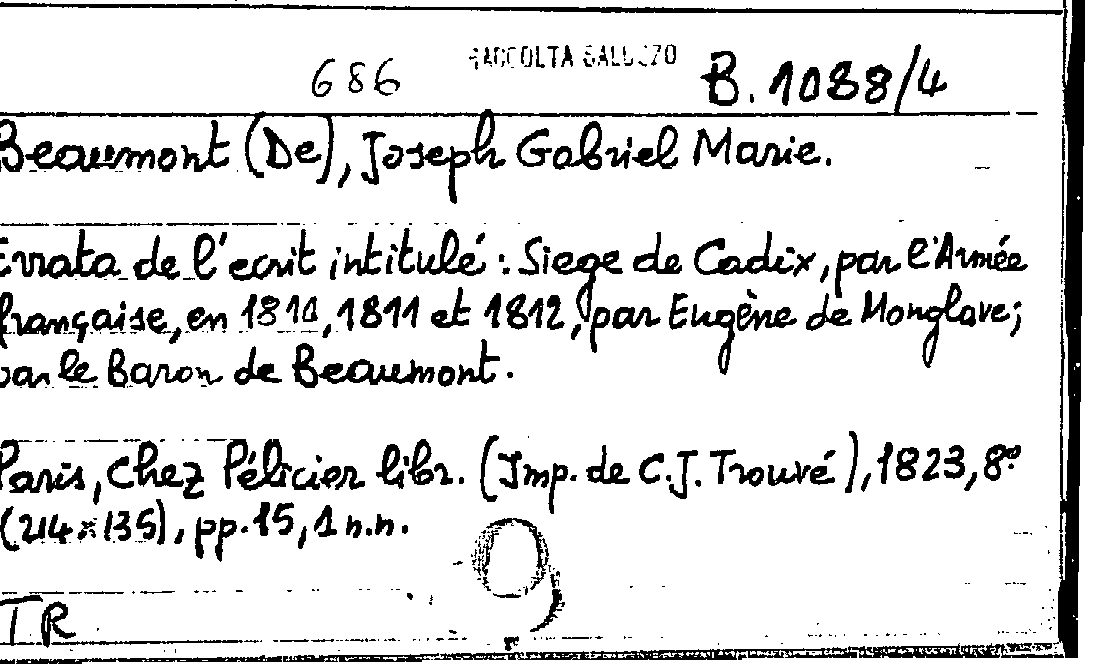 686 RACCOLTA GALLIZO B. 1088/4
Beaumont (De), Joseph Gabriel Marie.
Errata de l'ecrit intitulé: Siege de Cadix, par l'Armée
française, en 1810, 1811 et 1812, par Eugène de Monglave;
par le Baron de Beaumont.
Paris, Chez Pélicier libr. (Imp. de C.J. Trouvé), 1823, 8º
(214x135), pp. 15, 1 n.n.
9
TR